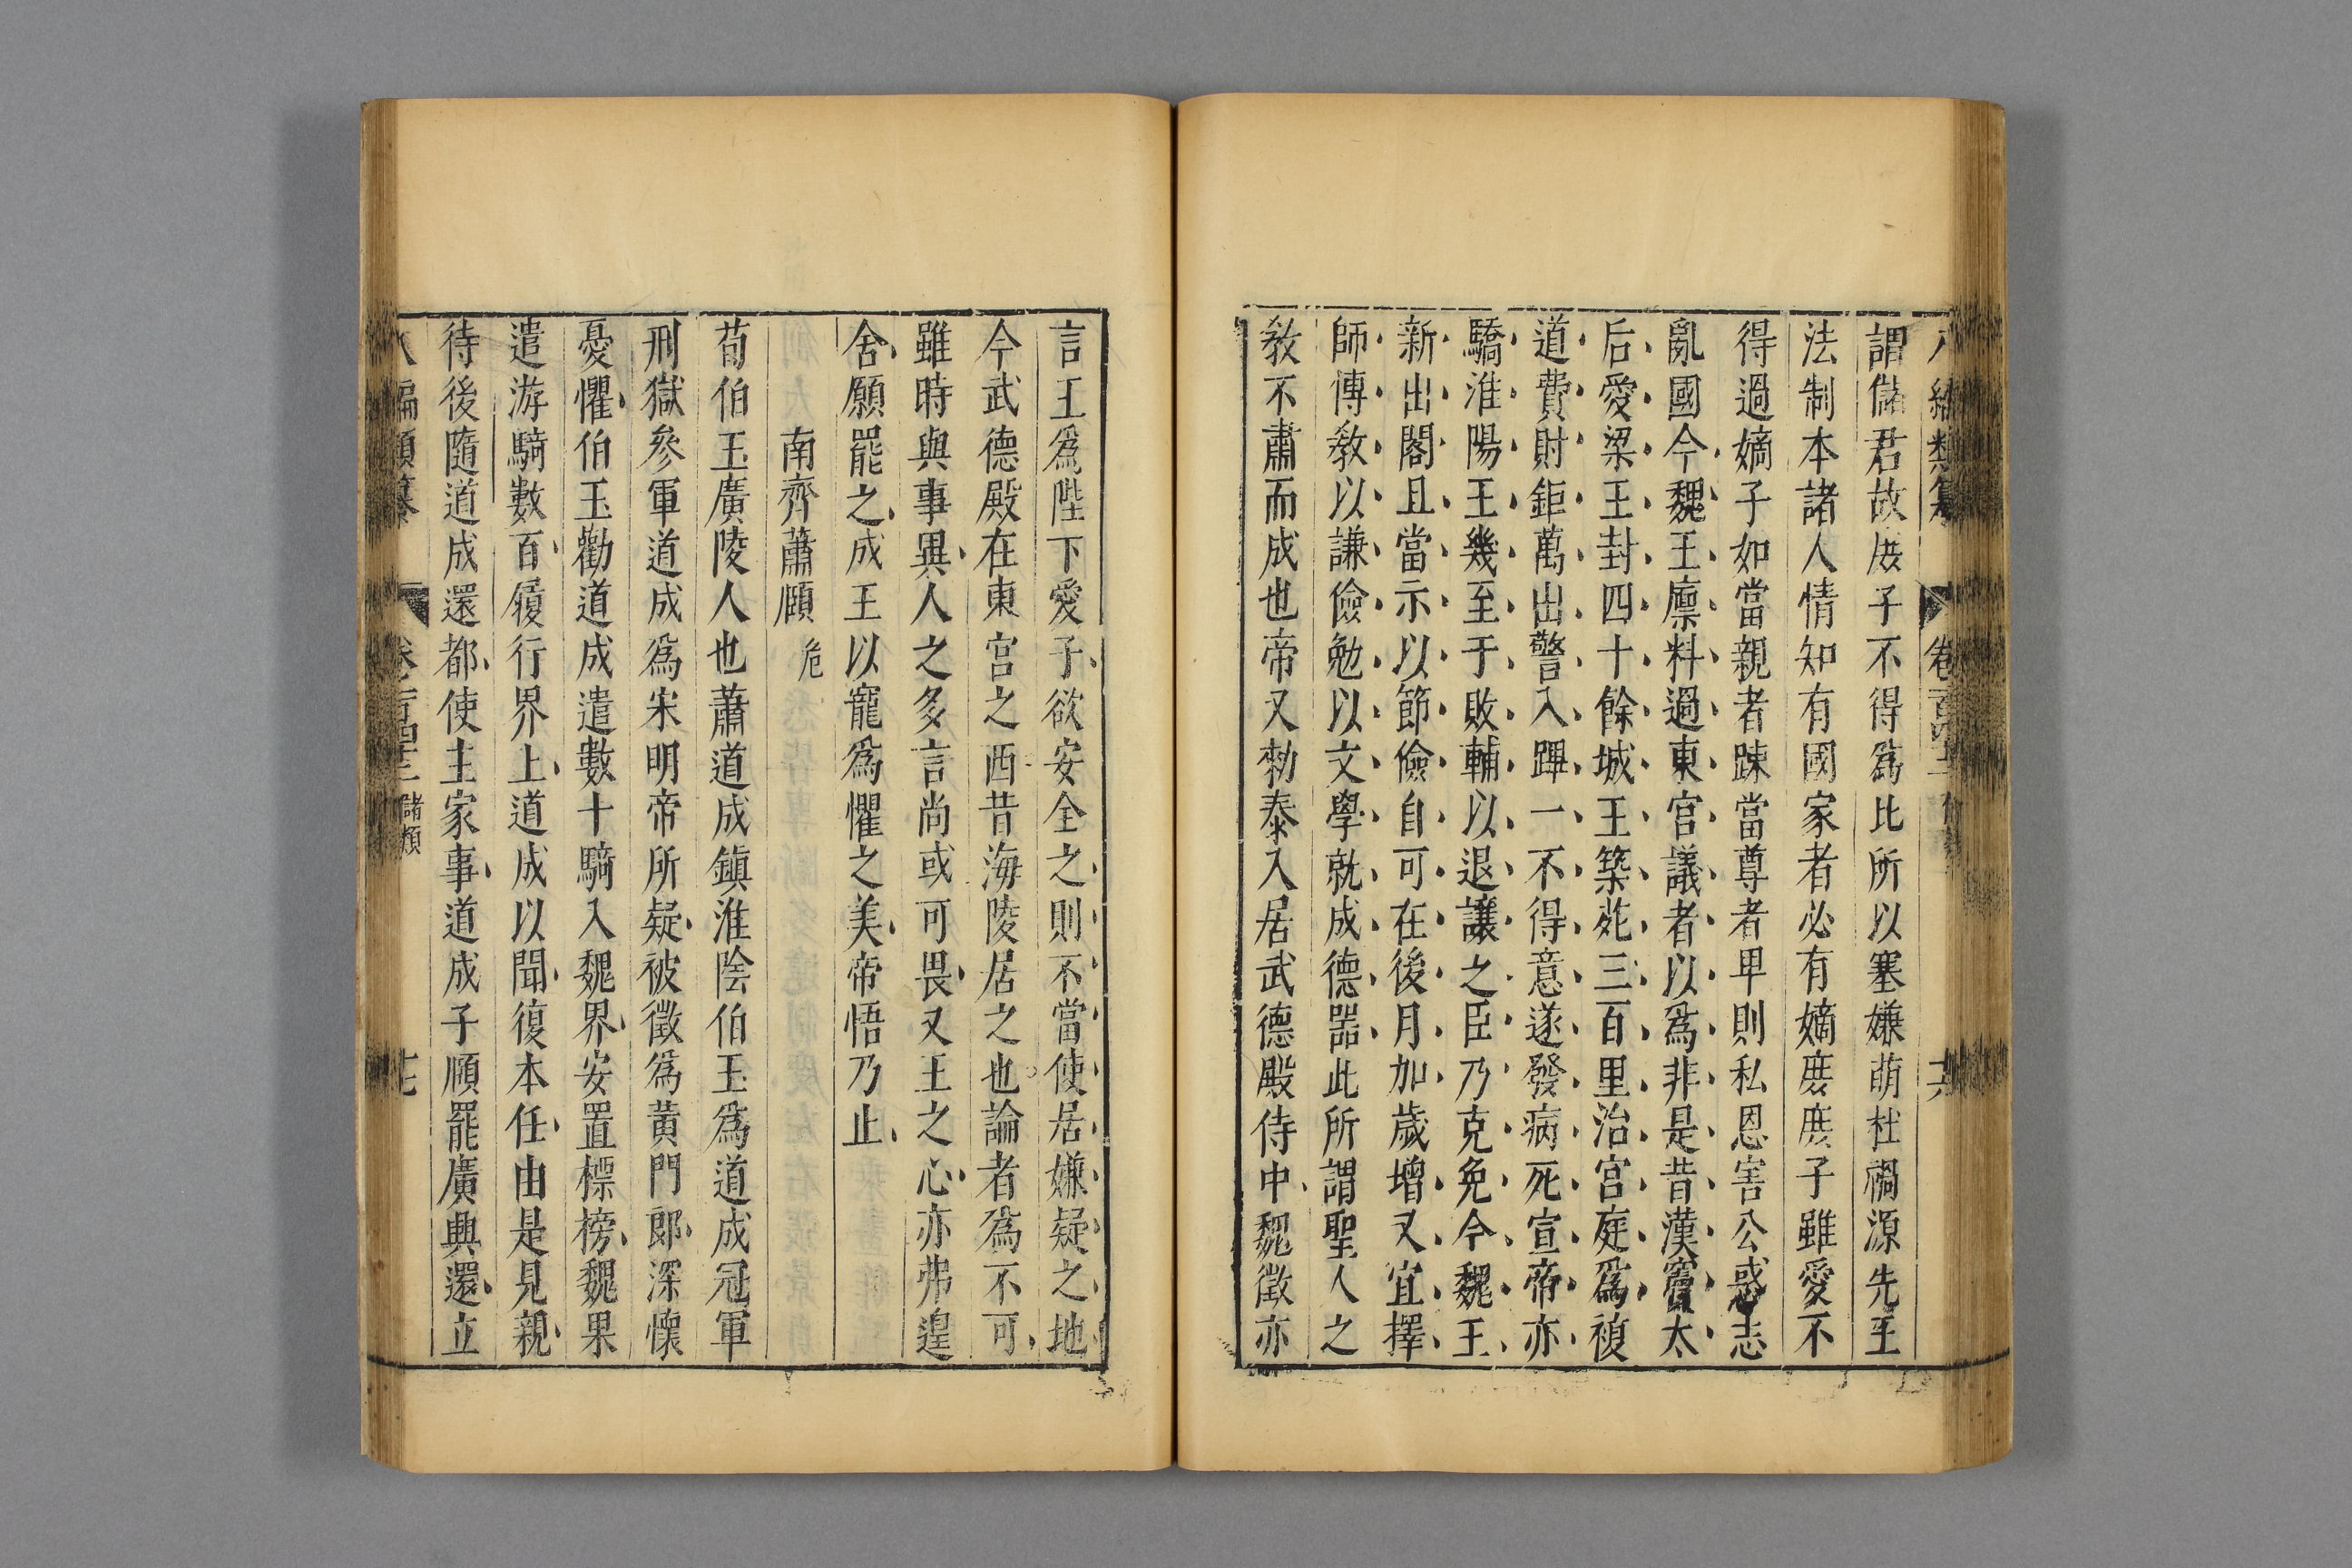 謂儲君故庶子不得爲比所以塞嫌萌杜禍源先王
法制本諸人情知有國家者必有嫡庶庶子雖愛不
得過嫡子如當親者踈當尊者卑則私恩害公惑志
亂國今魏王廩料過東宮議者以爲非是昔漢竇太
后愛梁王封四十餘城王築苑三百里治宮庭爲複
道費財鉅萬出警入蹕一不得意遂發病死宣帝亦
驕淮陽王幾至于敗輔以退讓之臣乃克免今魏王
新出閤且當示以節儉自可在後月加歲增又宜擇
師傅敎以謙儉勉以文學就成德器此所謂聖人之
敎不肅而成也帝又勑泰入居武德殿侍中魏徵亦
言王爲陛下愛子欲安全之則不當使居嫌疑之地
今武德殿在東宮之西昔海陵居之也論者爲不可
雖時與事異人之多言尚或可畏又王之心亦弗遑
舍願罷之成王以寵爲懼之美帝悟乃止
南齊蕭賾 危
荀伯玉廣陵人也蕭道成鎮淮陰伯玉爲道成冠軍
刑獄參軍道成爲宋明帝所疑被徵爲黃門郎深懷
憂懼伯玉勸道成遣數十騎入魏界安置標榜魏果
遣游騎數百履行界上道成以聞復本任由是見親
待後隨道成還都使主家事道成子順罷廣興還立
八編類纂 卷之一百四十三 儲類 十七